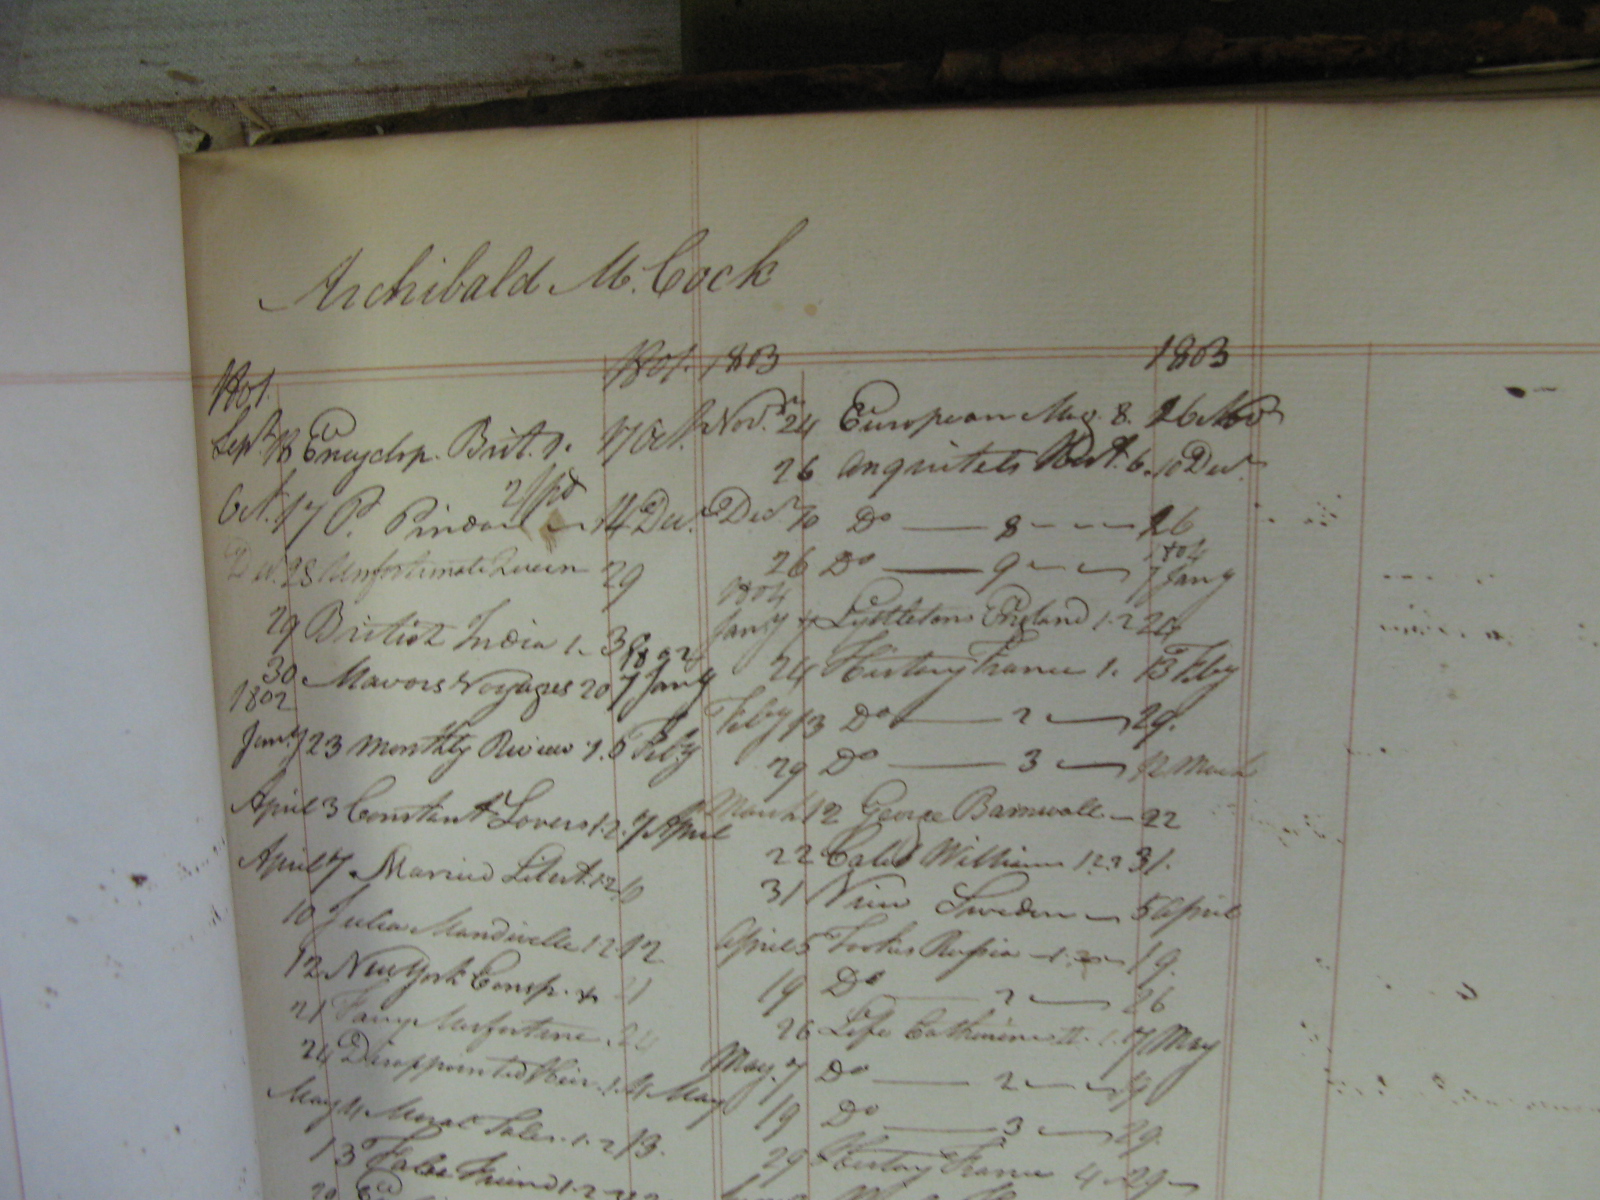 Archibald McCock
1801.
1801.
Sept 18 Encyclop. Brit. 1. 17 Oct.
2/pd
Oct. 17 P. Pindar 14 Dec.
Dec. 28 Unfortunate Queen 29
29 British India 1. 3
1802
30 Mavors Voyages 20 7 Jany
1802
Jany 23 Monthly Review 1. 5 Feby
April 3 Constant Lovers 1.2. 7 April
April 7 Married Libert. 1.2 10
10 Julia Mandiville 1 2 12
12 New York Consp. 21
21 Fanny Misfortune 24
24 Disappointed Heir. 1. 4 May
May 4 Moral Tales. 1.2 13.
13 False Friend 1.2
1803
1803
Novr 24 European Mag. 8. 26 Nov
26 Anquitels Hist. 6. 10 Decr
Decr 10 Do 8 26
1804
26 Do 9 7 Jany
1804
Jany 7 Lyttletons England 1.2 24
24 History France 1. 13 Feby
Feby 13 Do 2 29.
29 Do 3 12 March
March 12 George Barnwell 22
22 Caleb William 1.2.3 31.
31 View Sweden 5 April
April 5 Tookes Russia 1. 19.
19 Do 2 26
26 Life Catherine II. 1. 7 May
May. 7 Do 2 19
19 Do 3 29.
29 History France 4 29